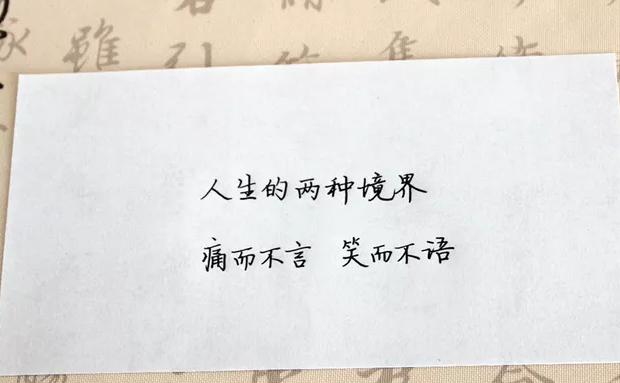 人生的两种境界
痛而不言 笑而不语